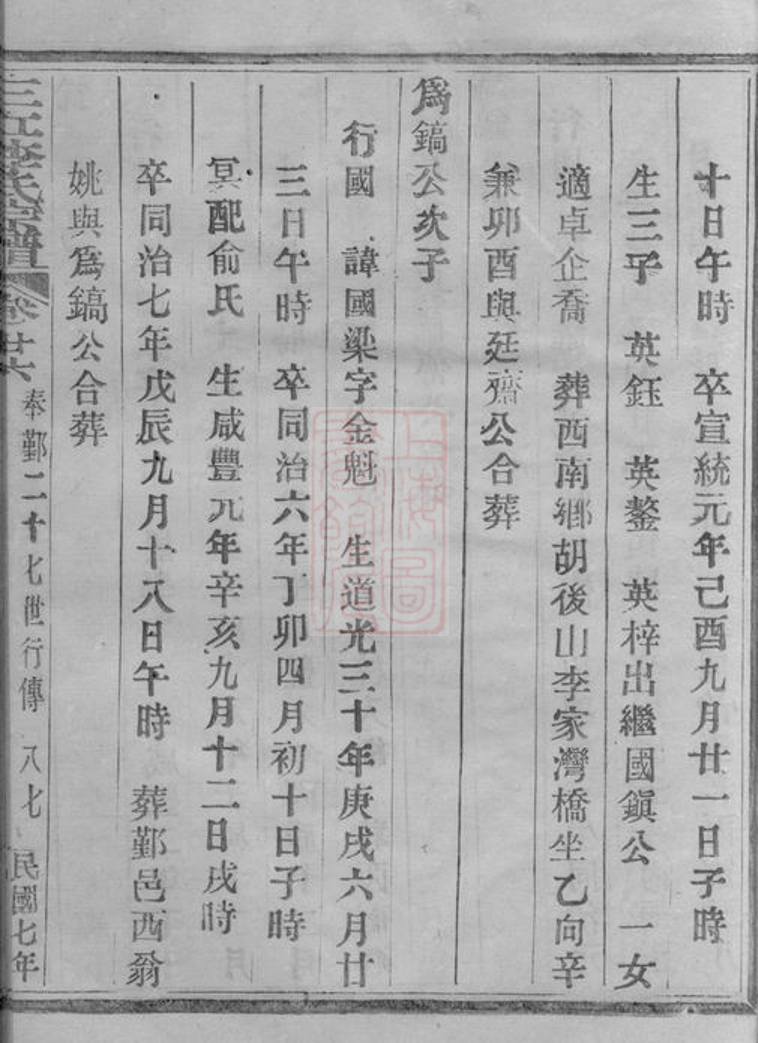 十日午時　卒宣統元年己酉九月廿一日子時
生三子　英鈺　英鏊　英梓出繼國鎮公　一女
適卓企喬　葬西南鄉胡後山李家灣橋坐乙向辛
兼卯酉與廷齋公合葬
爲鎬公次子
行國　諱國梁字金魁　生道光三十年庚戌六月廿
三日午時　卒同治六年丁卯四月初十日子時
冥配俞氏　生咸豐元年辛亥九月十二日戌時
卒同治七年戊辰九月十八日午時　葬鄞邑西翁
姚與爲鎬公合葬
三江李氏宗譜　卷廿六　奉鄞二十七世行傳　八七　民國七年